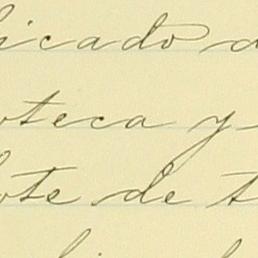 icado d
oteca y
ote de t